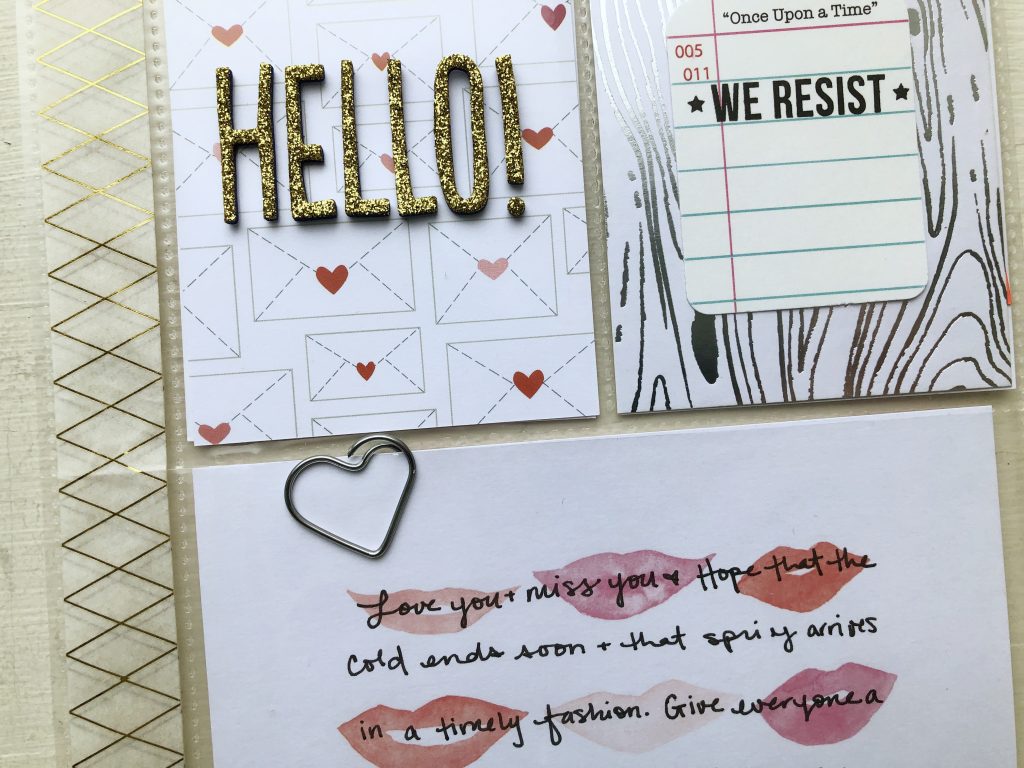 HELLO!
"Once Upon a Time"
005
011
★ WE RESIST ★
Love you + miss you + Hope that the
cold ends soon + that spring arrives
in a timely fashion. Give everyone a